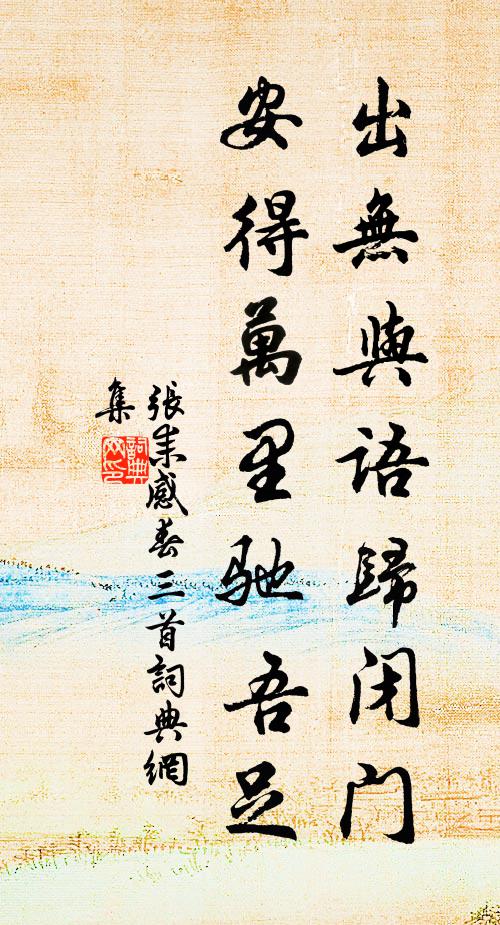 出無與語歸闭门
安得萬里馳吾足
張耒感春三首詞典網
集
詞典